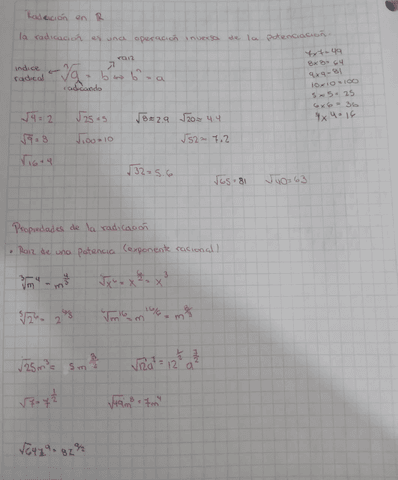 Radicación en R
la radicación es una operación inversa de la potenciación.
raiz
indice radical ⁿ√a = b ↔ bⁿ = a
radicando
7x7=49
8x8=64
9x9=81
10x10=100
5x5=25
6x6=36
4x4=16
√4=2 √25=5 √8=2.9 √20=4.4
√9=3 √100=10 √52=7,2
√16=4
√32=5.6
√65=81 √40=63
Propiedades de la radicación
• Raiz de una potencia (exponente racional)
∛m⁴ = m^4/3 √x⁶ = x^6/2 = x³
⁵√2⁶ = 2^6/5
√25m³ = 5m^3/2
√7 = 7^1/2 √49m⁸ = 7m⁴
√64z⁹ = 8z^9/2